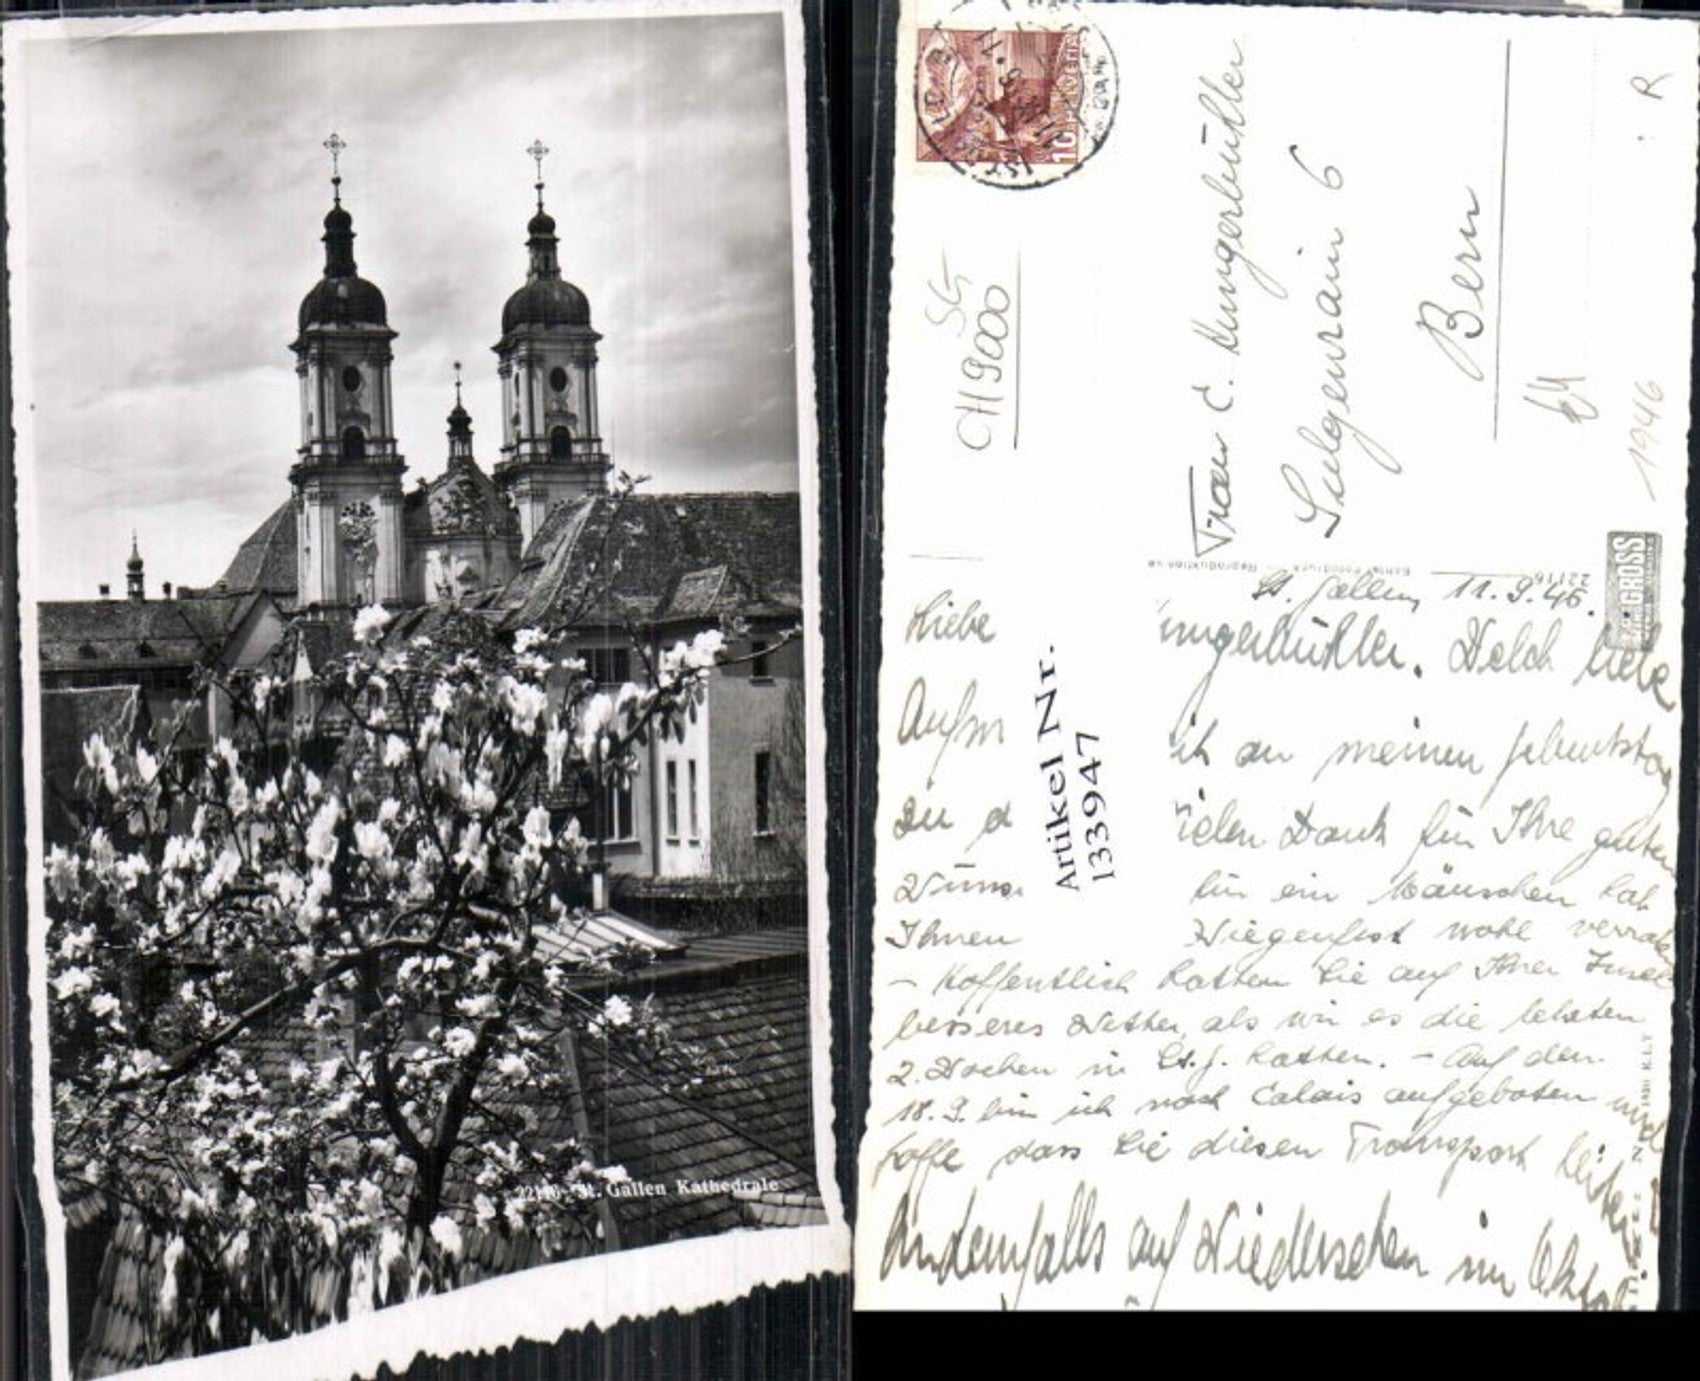 22116 St. Gallen Kathedrale
HELVETIA
10
SG
CH 9000
Frau C. Hungerbühler
Sulgenrain 6
Bern
R
1946
Echte Fotodruck - Reproduktion
22116
CROSS
St. Gallen, 11.9.46.
Liebe ungerbühler. Welch liebe
Aufm it an meinen Geburtstag
zu d ielen Dank für Ihre guten
Wüns ein Mäuschen hat
Ihnen Wiegenfest wohl verraten
- Hoffentlich hatten Sie auf Ihrer Insel
besseres Wetter, als wir es die letzten
2. Wochen in St. G. hatten. - Auf den
18.9. bin ich nach Calais aufgeboten und
hoffe dass Sie diesen Transport leiten
Andernfalls auf Wiedersehen im Oktob
Artikel Nr.
133947